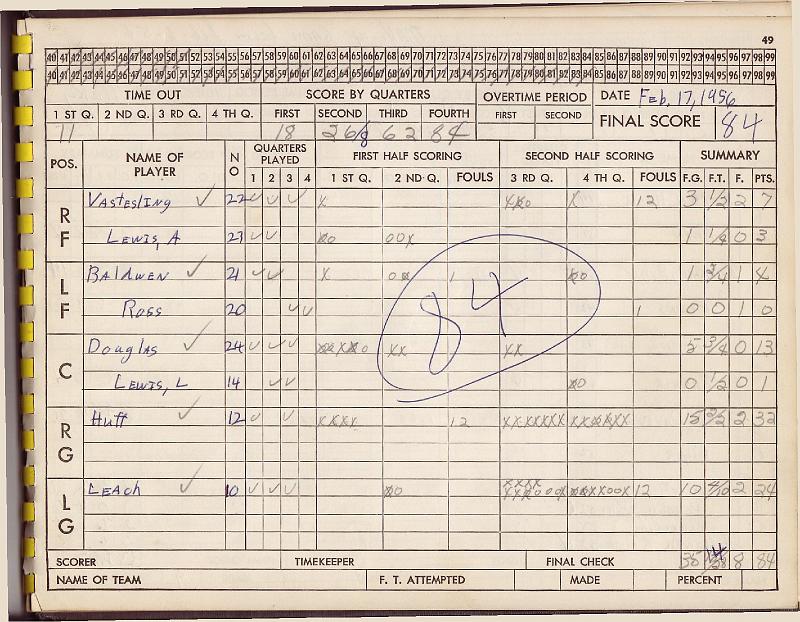 49
40 41 42 43 44 45 46 47 48 49 50 51 52 53 54 55 56 57 58 59 60 61 62 63 64 65 66 67 68 69 70 71 72 73 74 75 76 77 78 79 80 81 82 83 84 85 86 87 88 89 90 91 92 93 94 95 96 97 98 99
40 41 42 43 44 45 46 47 48 49 50 51 52 53 54 55 56 57 58 59 60 61 62 63 64 65 66 67 68 69 70 71 72 73 74 75 76 77 78 79 80 81 82 83 84 85 86 87 88 89 90 91 92 93 94 95 96 97 98 99
TIME OUT SCORE BY QUARTERS OVERTIME PERIOD DATE Feb. 17, 1956
1 ST Q. 2 ND Q. 3 RD Q. 4 TH Q. FIRST SECOND THIRD FOURTH FIRST SECOND FINAL SCORE 84
11 18 62 84
POS. NAME OF PLAYER NO QUARTERS PLAYED FIRST HALF SCORING SECOND HALF SCORING SUMMARY
1 2 3 4 1 ST Q. 2 ND Q. FOULS 3 RD Q. 4 TH Q. FOULS F.G. F.T. F. PTS.
RF Vastesling ✓ 22 ✓ ✓ ✓ X X 12 3 1/2 2 7
Lewis, A 23 ✓ ✓ 00X 1 1/4 0 3
LF Baldwen ✓ 21 ✓ ✓ X 1 1 2/4 1 4
Ross 20 ✓ ✓ 1 0 0 1 0
C Douglas ✓ 24 ✓ ✓ ✓ XX XX 5 3/4 0 13
Lewis, L 14 ✓ ✓ 0 1/2 0 1
RG Huff ✓ 12 ✓ ✓ XXXX 12 15 2/2 2 32
LG Leach ✓ 10 ✓ ✓ ✓ 12 10 4/10 2 24
84
SCORER TIMEKEEPER FINAL CHECK 35 14/28 8 84
NAME OF TEAM F. T. ATTEMPTED MADE PERCENT